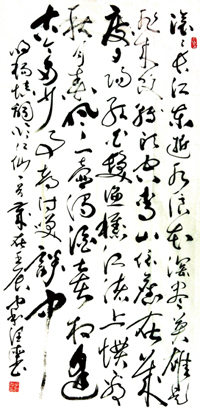 滚滚长江东逝水浪花淘尽英雄是
非成败转头空青山依旧在几
度夕阳红白发渔樵江渚上惯看
秋月春风一壶浊酒喜相逢
古今多少事都付笑谈中
明杨慎词临江仙 岁在